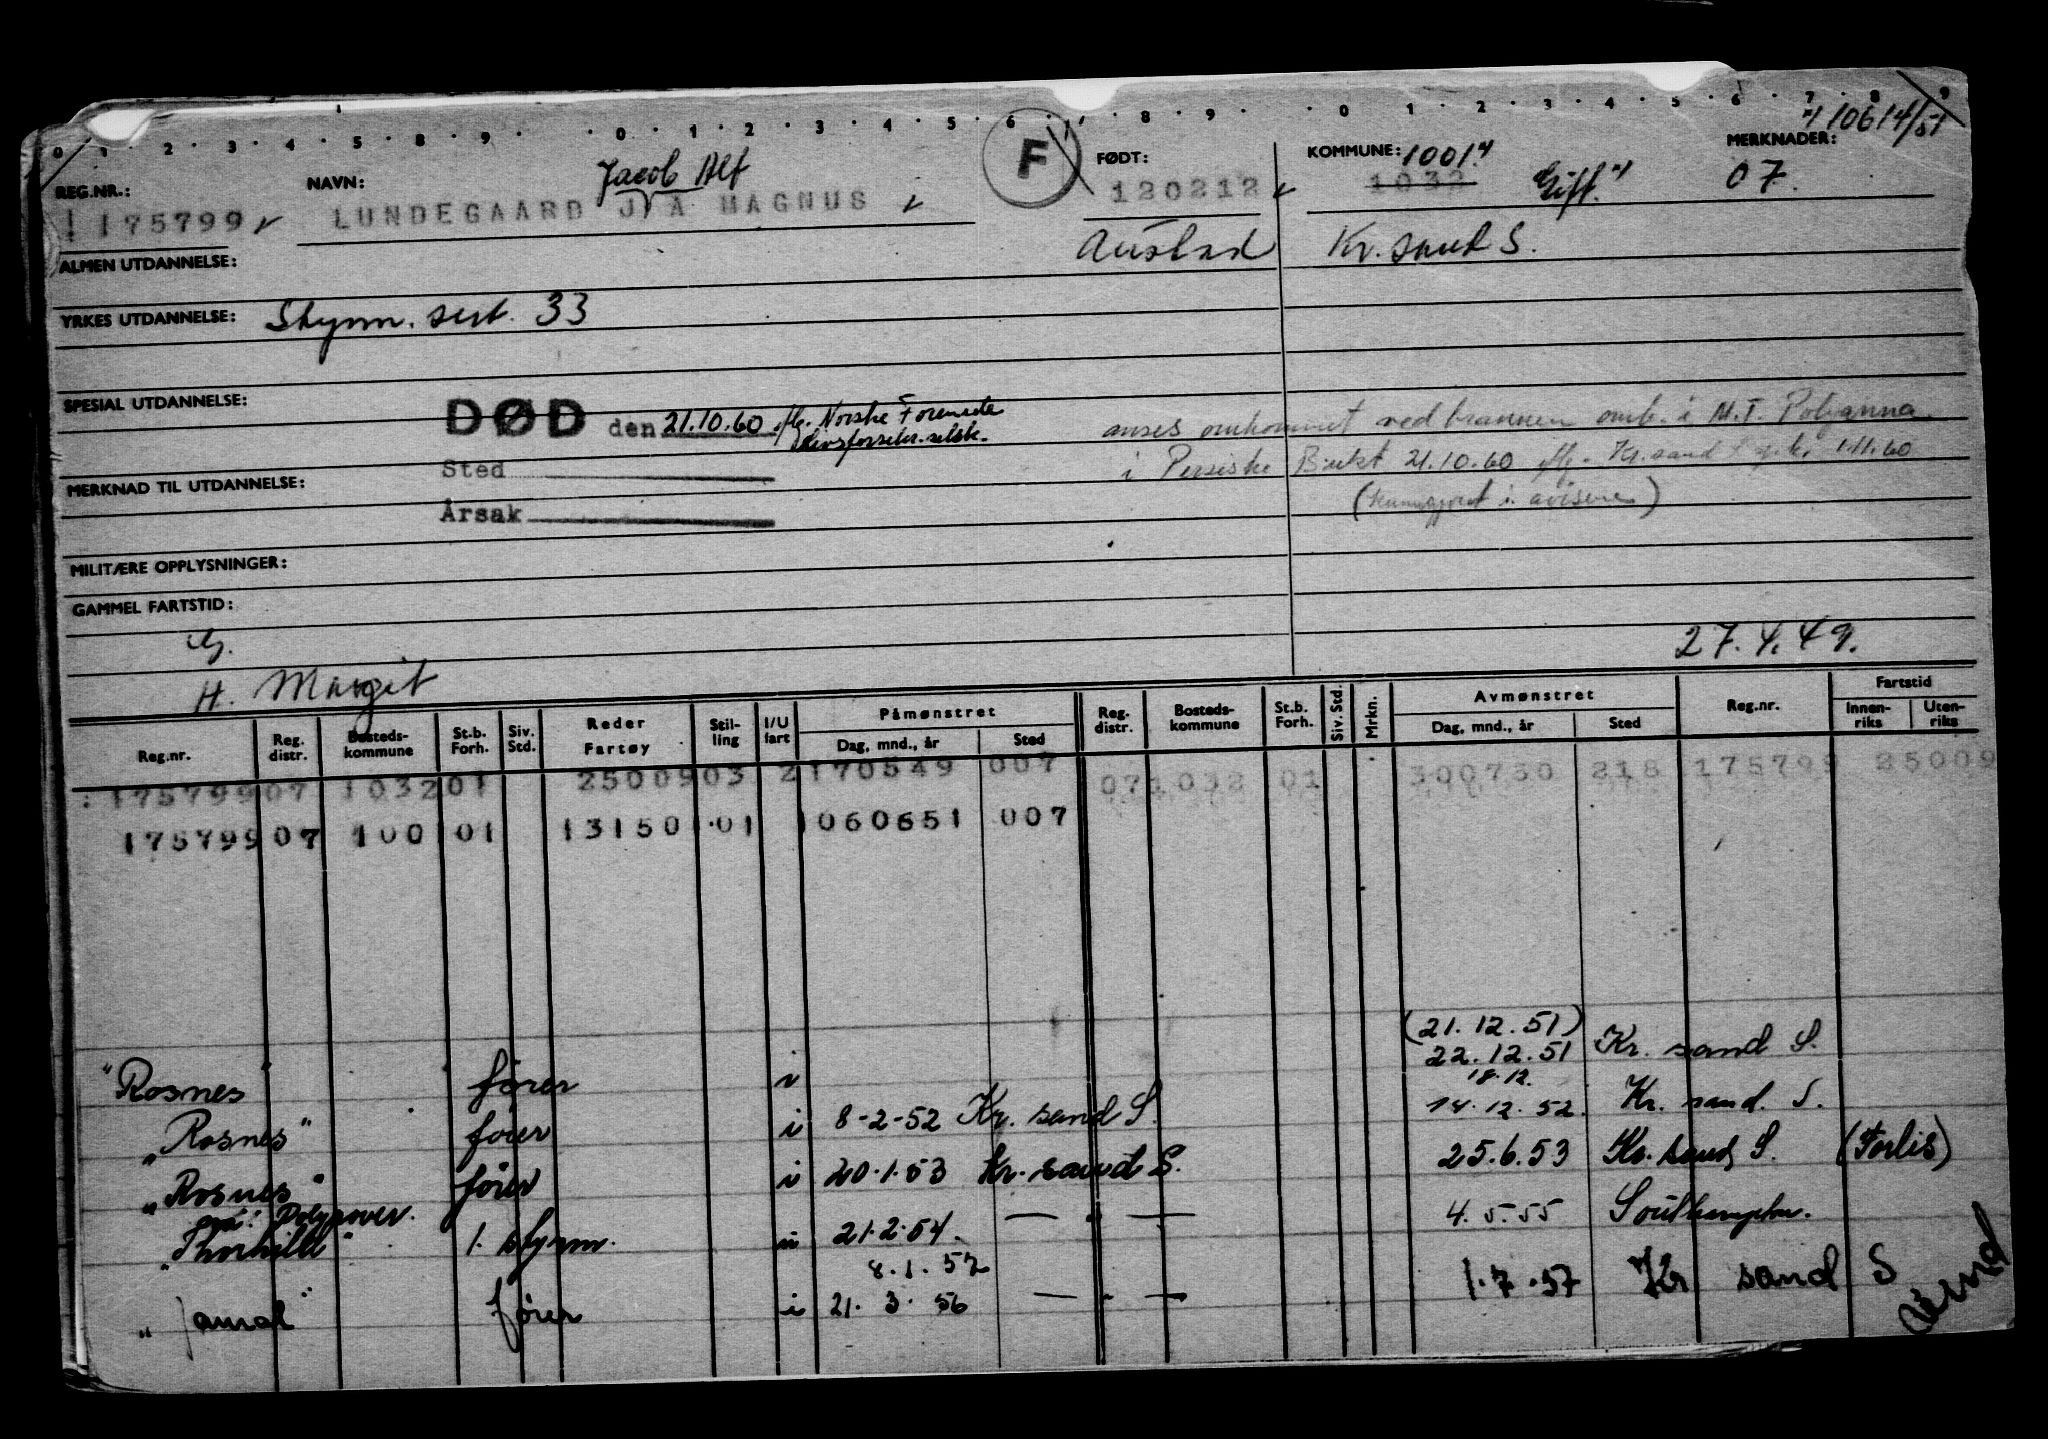 0 1 2 3 4 5 8 9 0 1 2 3 4 5 6 7 8 9 0 1 2 3 4 5 6 7 8 9
4 10614/51
REG.NR.: NAVN: Jacob Alf F FØDT: KOMMUNE: 1001 4 MERKNADER:
175799 LUNDEGAARD J A MAGNUS 120212 1032 Gift. 4 07.
ALMEN UTDANNELSE: Austad Kr. sand S.
YRKES UTDANNELSE: Styrm. sert. 33
SPESIAL UTDANNELSE:
DØD den 21.10.60 iflg. Norske Forenede
Livsforsikr. selsk.
anses omkommet ved brannen omb. i M.T. Polyanna
Sted
i Persiske Bukt 21.10.60 iflg. Kr.sand 1.11.60
MERKNAD TIL UTDANNELSE:
Årsak
(kunngjort i avisene)
MILITÆRE OPPLYSNINGER:
GAMMEL FARTSTID:
G. 27.4.49.
H. Margit
Reg.nr. Reg. distr. Bosteds- kommune St.b. Forh. Siv. Std. Reder Fartøy Stil- ling I/U fart Påmønstret Dag, mnd., år Sted Reg. distr. Bosteds- kommune St.b. Forh. Siv. Std. Mrkn. Avmønstret Dag, mnd., år Sted Reg.nr. Fartstid Innen- riks Uten- riks
175799 07 1032 01 25009 03 2 170549 007 07 1032 01 300750 218 175799 25009
175799 07 1001 01 13150 01 1 060651 007
(21.12.51)
"Rosnes" fører i 22.12.51 Kr. sand S.
18.12.
"Rosnes" fører i 8-2-52 Kr. sand S. 14.12.52. Kr. sand. S.
"Rosnes" fører i 20.1.53 Kr. sand S. 25.6.53 Kr. sand S. (Forlis)
nå: Polyriver.
"Thorhild" 1. styrm. u 21.2.54. — " — 4.5.55 Southampton.
8.1.57
"Jamal" fører i 21.3.56 — " — 1.7.57 Kr sand S